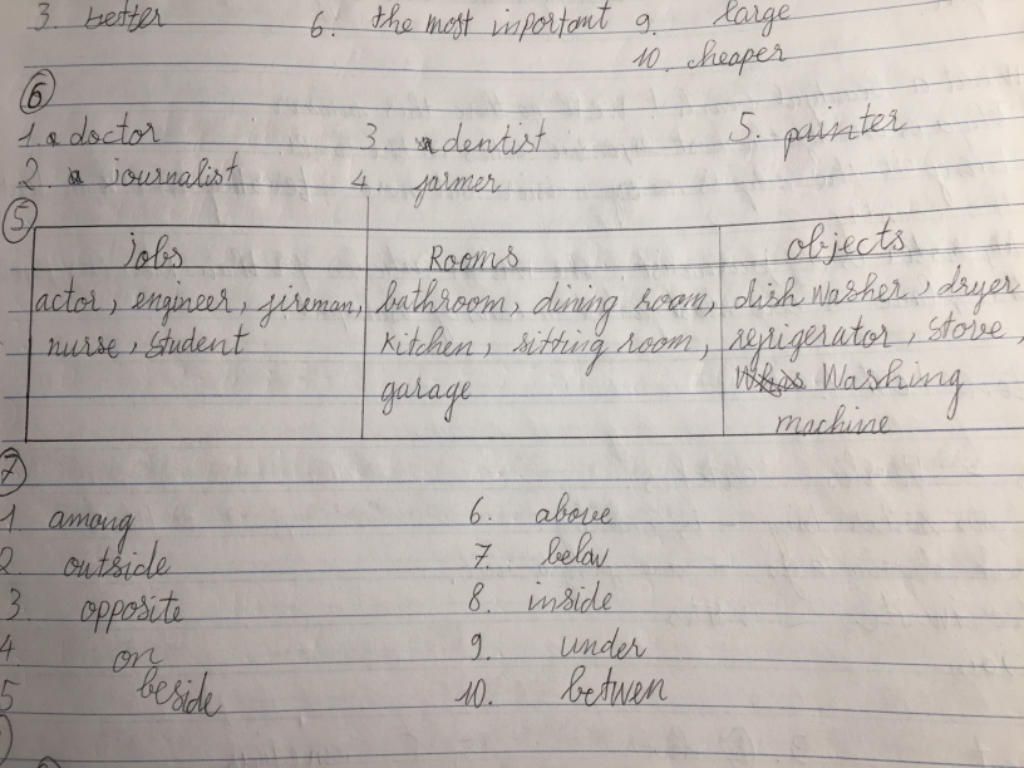 3. better 6. the most important 9. large
10. cheaper
6
1. a doctor 3. dentist 5. painter
2. journalist 4. farmer
5
Jobs Rooms objects
actor, engineer, fireman, bathroom, dining room, dish washer, dryer
nurse, student kitchen, sitting room, refrigerator, stove,
garage Washing
machine
7
1. among 6. above
2 outside 7. below
3. opposite 8. inside
4. on 9. under
5 beside 10. betwen